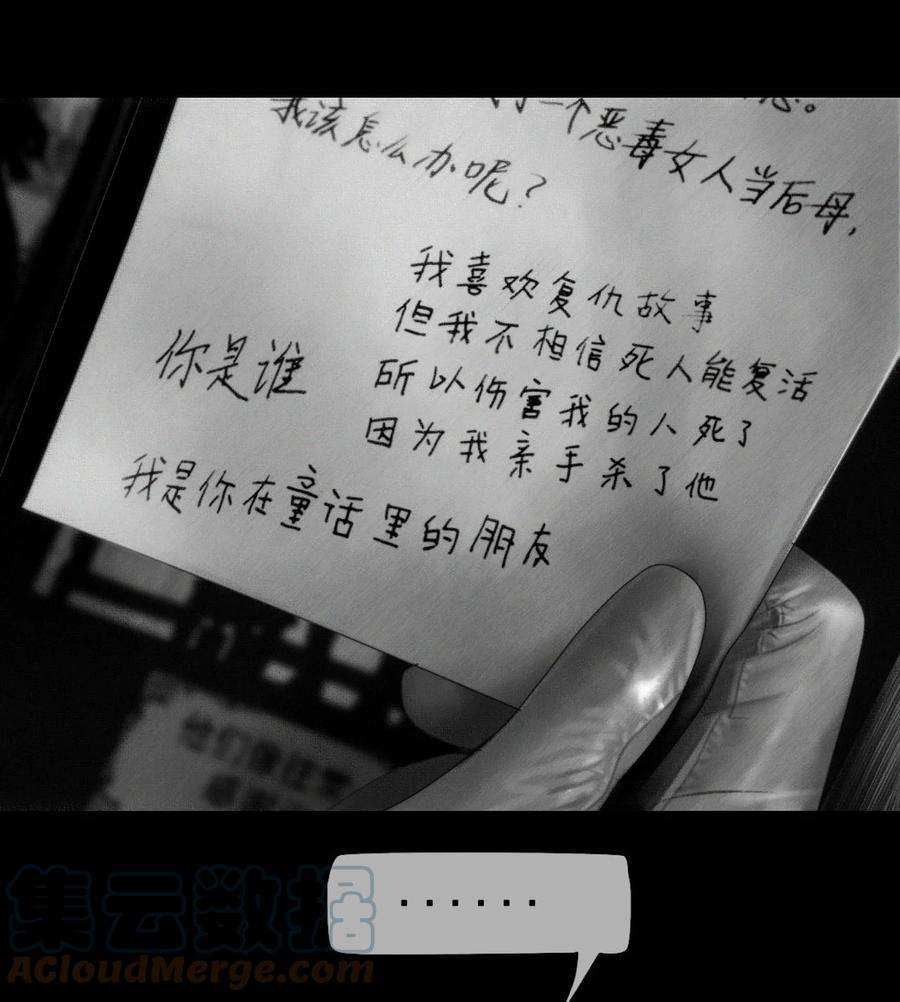 一个恶毒女人当后母，
我该怎么办呢？
我喜欢复仇故事
但我不相信死人能复活
所以伤害我的人死了
因为我亲手杀了他
你是谁
我是你在童话里的朋友
······
集云数据
ACloudMerge.com